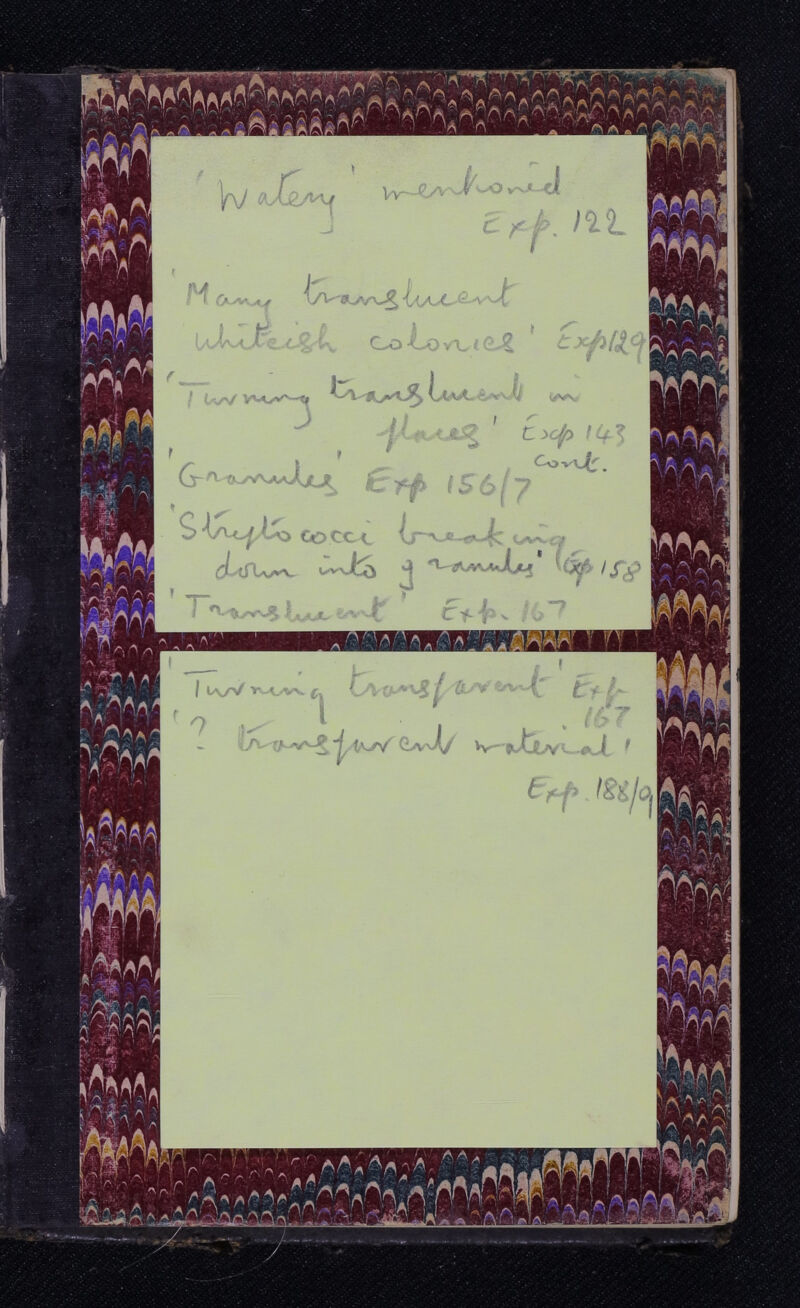 'Watery' mentioned
Exp. 122
'Many translucent
whiteish colonies' Exp129
'Turning translucent in
places' Exp 143
cont.
'Granules' Exp 156/7
'Streptococci breaking
down into granules' Exp 158
'Translucent' Exp. 167
'Turning transparent' Exp
167
'? transparent material'
Exp. 188/9